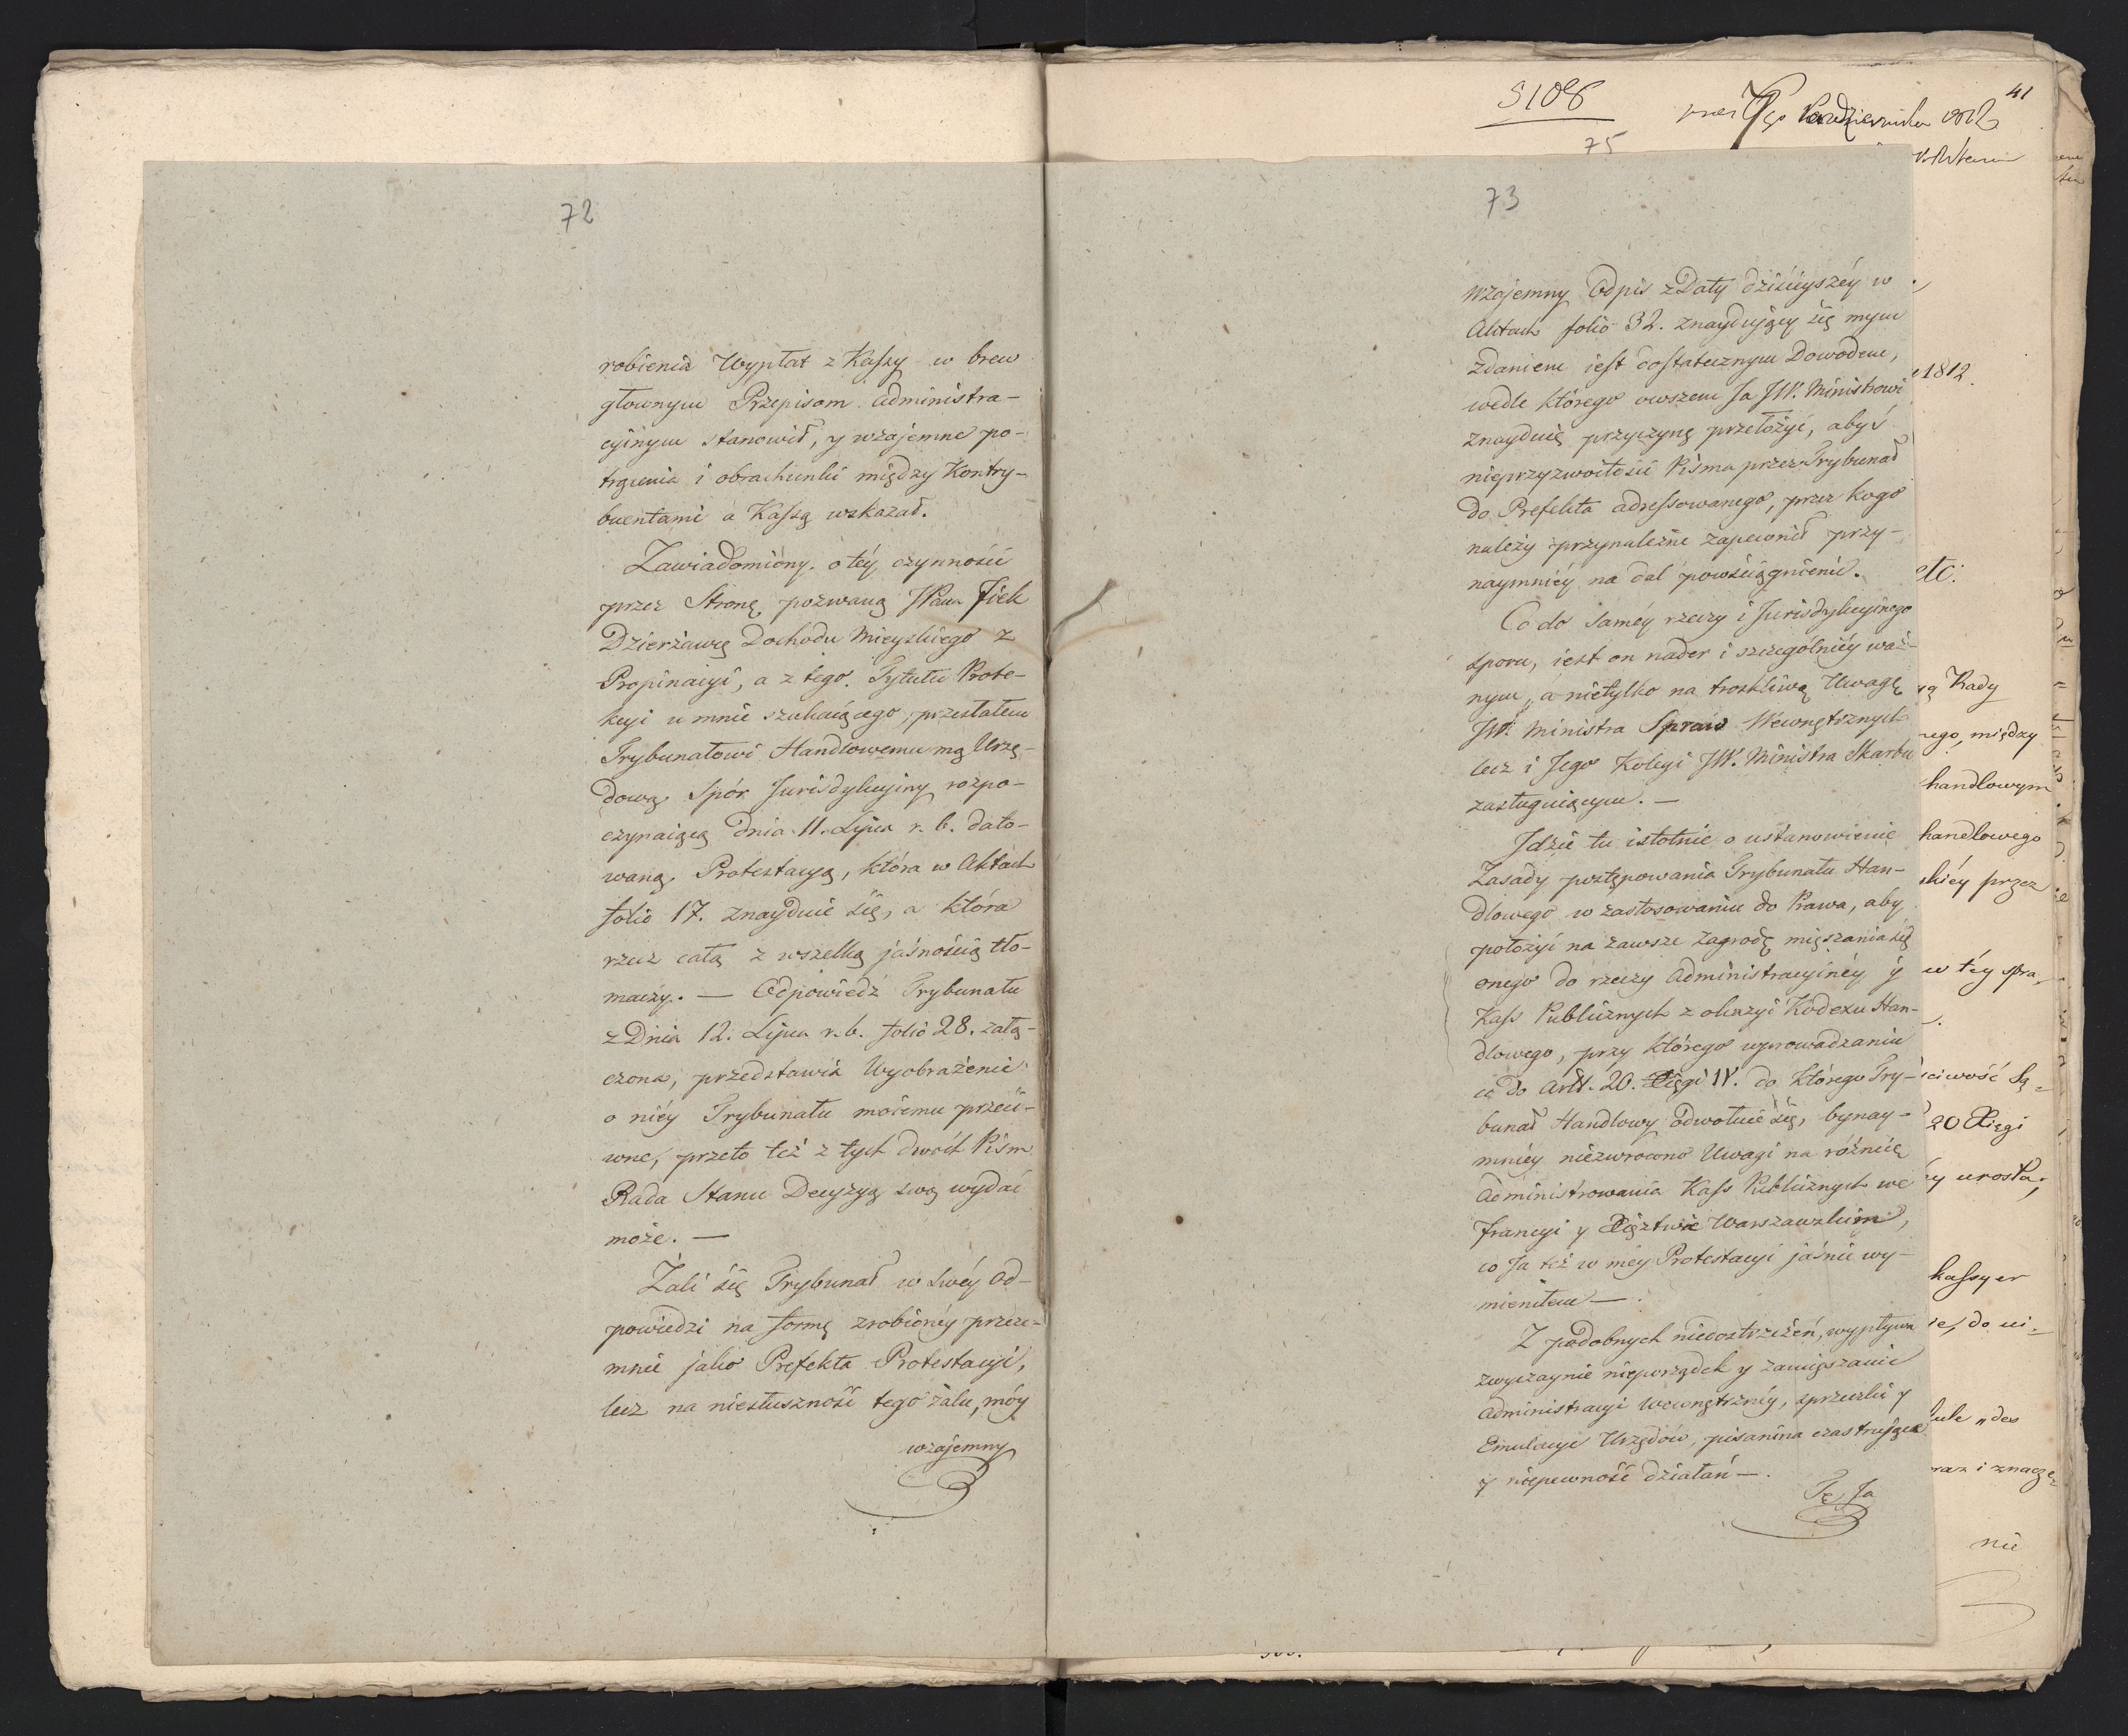 72
robienia Wypłat z Kassy w brew
głownym Przepisom administra-
cyinym stanowił, y wzajemne po-
trącenia i obrachunki między Kontry-
buentami a Kassą wskazał.
Zawiadomióny o téy czynności
przez Stronę pozwaną JPana Fick
Dzierżawcę Dochodu Mieyskiego z
Propinacyi, a z tego Tytułu Prote-
kcyi u mnie szukaiącego, przesłałem
Trybunałowi Handlowemu mą Urzę-
dową Spór Jurisdykcyiny rozpo-
czynaiącą Dnia 11. Lipca r. b. dato-
waną Protestacyą, która w Aktach
folio 17. znayduie się, a która
rzecz całą z wszelką jaśnością tło-
maczy. — Odpowiedź Trybunału
z Dnia 12. Lipca r. b. folio 28. załą-
czona, przedstawia Wyobrażenie
o niéy Trybunału moiemu przeci-
wne, przeto też z tych dwóch Pism
Rada Stanu Decyzyą swą wydać
może. —
Żali się Trybunał w swéy Od-
powiedzi na formę zrobionéy przeze-
mnie jako Prefekta Protestacyi,
lecz na niesłuszność tego żalu, móy
wzajemny
5108
41
Października 1812
75
73
Wzajemny Odpis z Daty dzisieyszéy w
Aktach folio 32. znayduiący się mym
zdaniem iest dostatecznym Dowodem,
wedle którego owszem Ja JW. Ministrowi
znayduię przyczynę przełożyć, abyś
nieprzyzwoitości Pisma przez Trybunał
do Prefekta adressowanego, przez kogo
należy przynależnie zapewnił przy-
naymniéy na dal powściągnienie.
Co do saméy rzeczy i Jurisdykcyinego
sporu, iest on nader i szczególniéy waż-
nym, a nietylko na troskliwą Uwagę
JW. Ministra Spraw Wewnętrznych
lecz i Jego Kolegi JW. Ministra Skarbu
zasługuiącym. —
Jdzie tu istotnie o ustanowienie
Zasady postępowania Trybunału Han-
dlowego w zastosowaniu do Prawa, aby
położyć na zawsze Zagrodę mięszania się
onego do rzeczy Administracyinéy y
Kass Publicznych z okazyi Kodexu Han-
dlowego, przy którego wprowadzaniu
co do Artt. 20. Xięgi IV. do którego Try-
bunał Handlowy odwołuie się, bynay-
mniéy niezwrocono Uwagi na różnicę
Administrowania Kass Publicznych we
Francyi y Xięztwie Warszawskim,
co Ja też w méy Protestacyi jaśnie wy-
mieniłem —.
Z podobnych niedostrzeżeń, wypływa
zwyczaynie nieporządek y zamięszanie
Administracyi Wewnętrznéy, sprzeczki y
Emulacye Urzędów, pisanina czas trująca
y niepewność działań —.
Tę Ja
1812.
etc:
Rady
rego, między
handlowym
handlowego
skiéy przez
w téy spra-
ciwość Są-
20 Xięgi
y urosła,
kassyer
do ui-
„des
raz i znacze-
nie